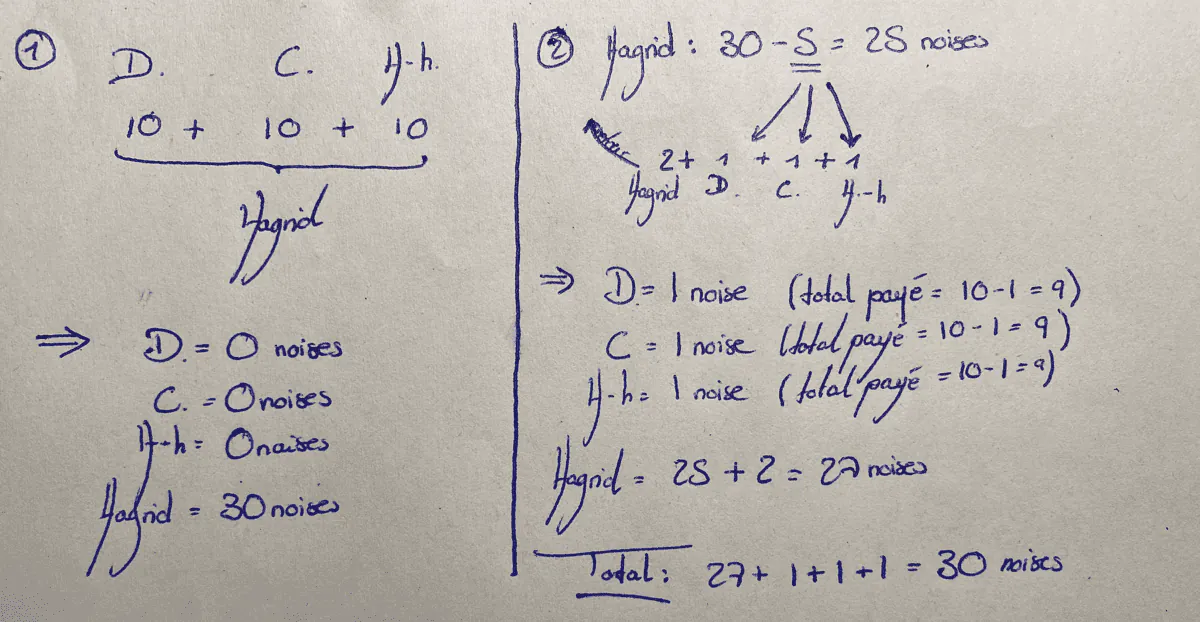 ①
D. C. H-h.
10 + 10 + 10
Hagrid
⇒ D. = 0 noises
C. = 0 noises
H-h = 0 noises
Hagrid = 30 noises
② Hagrid : 30 - 5 = 25 noises
2 + 1 + 1 + 1
Hagrid D. C. H.-h
⇒ D = 1 noise (total payé = 10 - 1 = 9)
C = 1 noise (total payé = 10 - 1 = 9)
H-h = 1 noise (total payé = 10 - 1 = 9)
Hagrid = 25 + 2 = 27 noises
Total : 27 + 1 + 1 + 1 = 30 noises